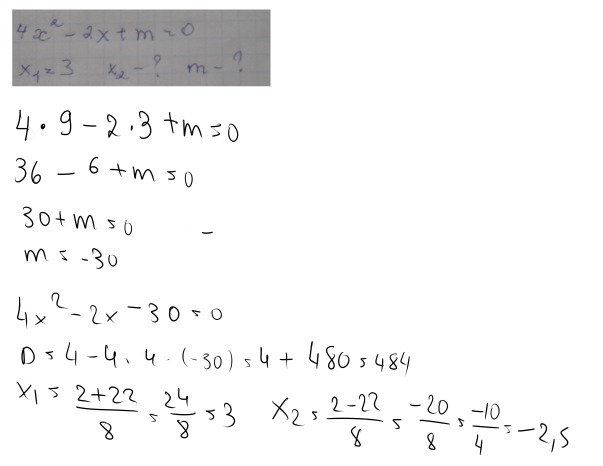 4x² - 2x + m = 0
x₁ = 3 x₂ - ? m - ?
4 · 9 - 2 · 3 + m = 0
36 - 6 + m = 0
30 + m = 0 -
m = -30
4x² - 2x - 30 = 0
D = 4 - 4 · 4 · (-30) = 4 + 480 = 484
x₁ = (2+22)/8 = 24/8 = 3 x₂ = (2-22)/8 = -20/8 = -10/4 = -2,5